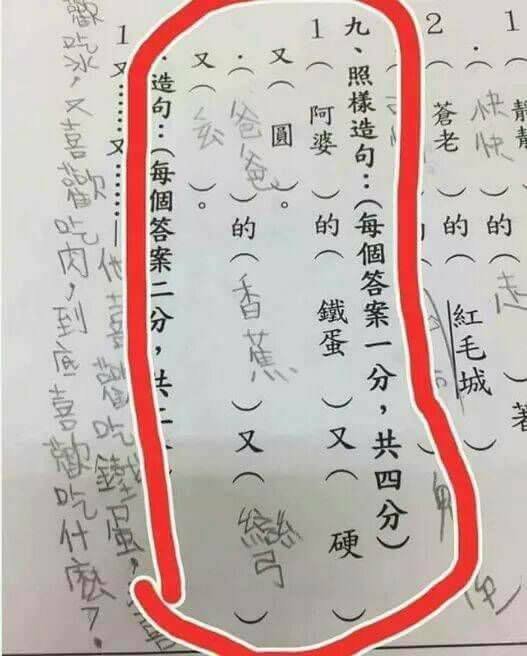 1 靜靜
．（快快）走）著
2（蒼老）的（紅毛城）
）的
九、照樣造句：（每個答案一分，共四分）
1（阿婆）的（鐵蛋）又（硬）
又（圓）。
．（爸爸）的（香蕉）又（彎）
又（）。
．造句：（每個答案二分，共二
1 又……又……—他喜歡吃鐵蛋，
歡吃冰，又喜歡吃肉，到底喜歡吃什麼？